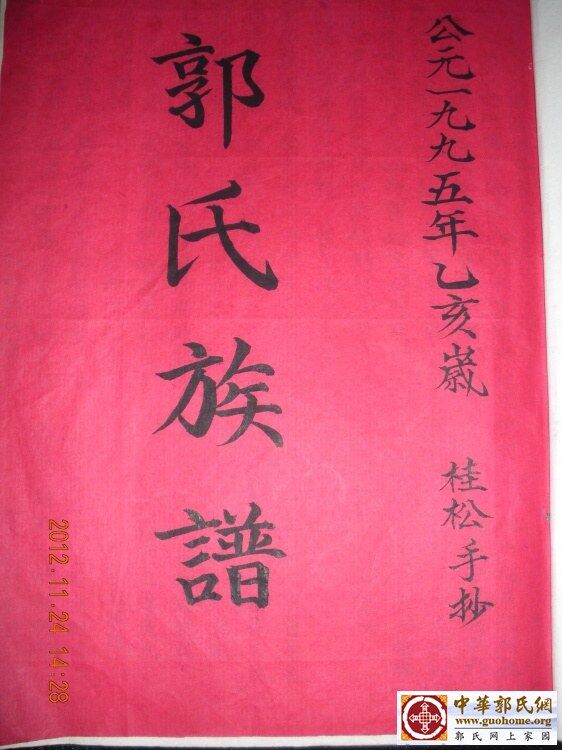 公元一九九五年乙亥歲 桂松手抄
郭氏族譜
2012.11.24 14:28
中華郭氏網
www.guohome.org
郭氏网上家园